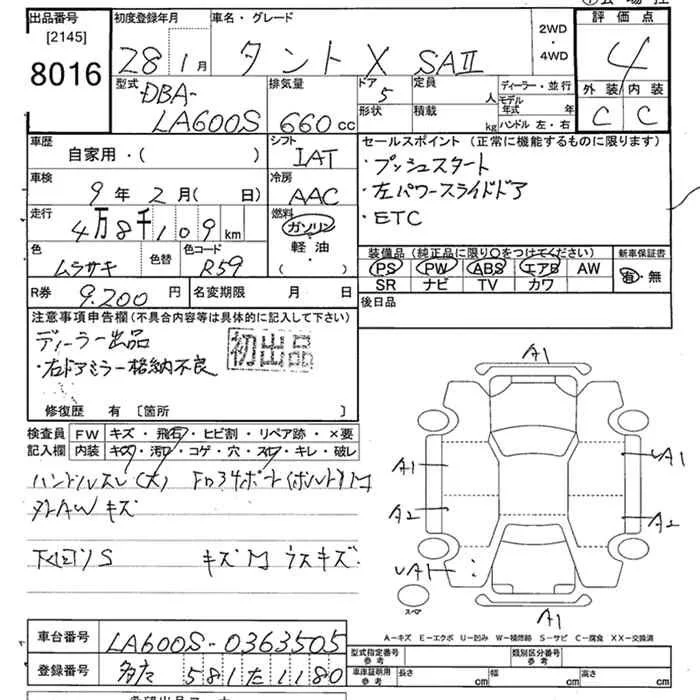 出品番号
[2145]
8016
初度登録年月
28 1月
車名・グレード
タント X SAⅡ
2WD
・
4WD
評価点
4
外装 内装
C C
型式
DBA-
LA600S
排気量
660 cc
ドア
5
形状
定員
人
積載
kg
ディーラー・並行
モデル年式 年
ハンドル 左・右
車歴
自家用・( )
シフト
IAT
セールスポイント (正常に機能するものに限ります)
・プッシュスタート
・左パワースライドドア
・ETC
車検
9年 2月( 日)
冷房
AAC
走行
4万8千109km
燃料
ガソリン
軽・油
( ・ )
色
ムラサキ
色替
色コード
R59
装備品(純正品に限り○をつけてください)
PS PW ABS エアB AW
SR ナビ TV カワ
新車保証書
有・無
R券 9,200円
名変期限 月 日
後日品
注意事項申告欄(不具合内容等は具体的に記入して下さい)
ディーラー出品
初出品
・右ドアミラー格納不良
修復歴 有 [箇所 ]
検査員
記入欄
FW キズ・飛石・ヒビ割・リペア跡・×要
内装 キズ・汚れ・コゲ・穴・スレ・キレ・破レ
ハンドルスレ(大)
キズ
下回りS キズM ウスキズ
A1
A1
A1
A2
A2
A1
A1
スペア
A-キズ E-エクボ U-凹み W-補修跡 S-サビ C-腐食 XX-交換済
車台番号 LA600S-0363505
登録番号 多摩 581 た 1180
型式指定番号
参考
類別区分番号
参考
車庫証明用
参考
長さ cm 幅 cm 高さ cm